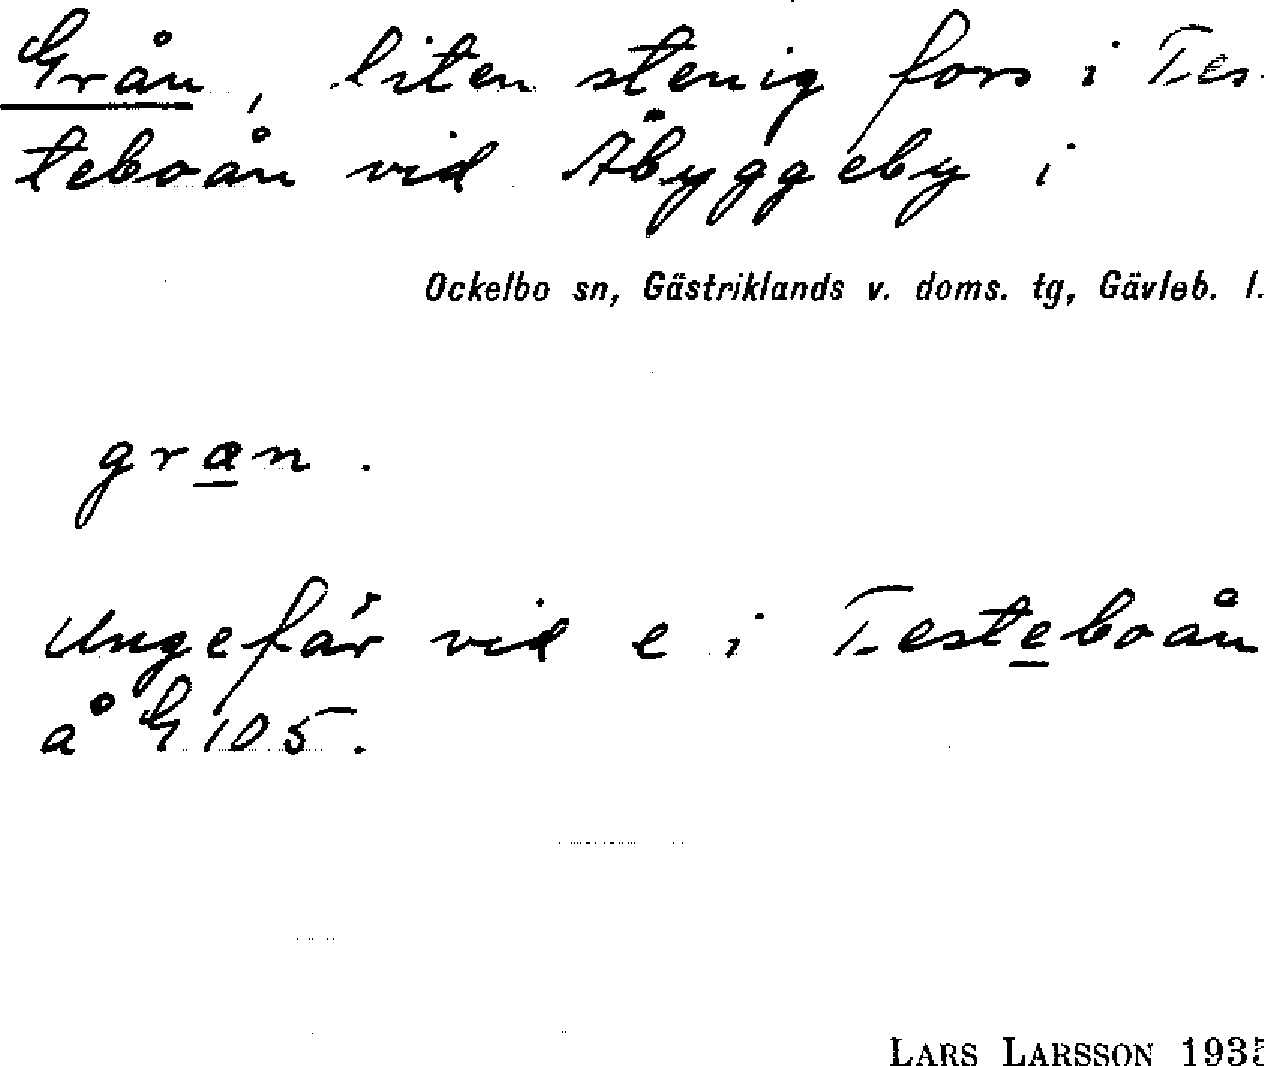 Grån, liten stenig fors i Tes-
teboån vid Åbyggeby i
Ockelbo sn, Gästriklands v. doms. tg, Gävleb. l.
gran.
Ungefär vid e i Testeboån
å G 105.
LARS LARSSON 1935